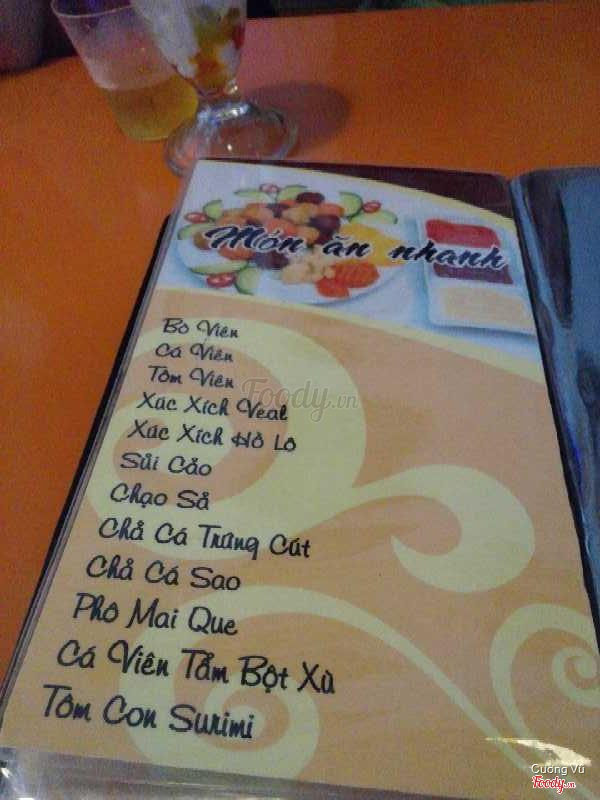 Món ăn nhanh
Bò Viên
Cá Viên
Tôm Viên
Xúc Xích Veal
Xúc Xích Hồ Lô
Sủi Cảo
Chạo Sả
Chả Cá Trứng Cút
Chả Cá Sao
Phô Mai Que
Cá Viên Tẩm Bột Xù
Tôm Con Surimi
Foody.vn
Cuong Vu
Foody.vn